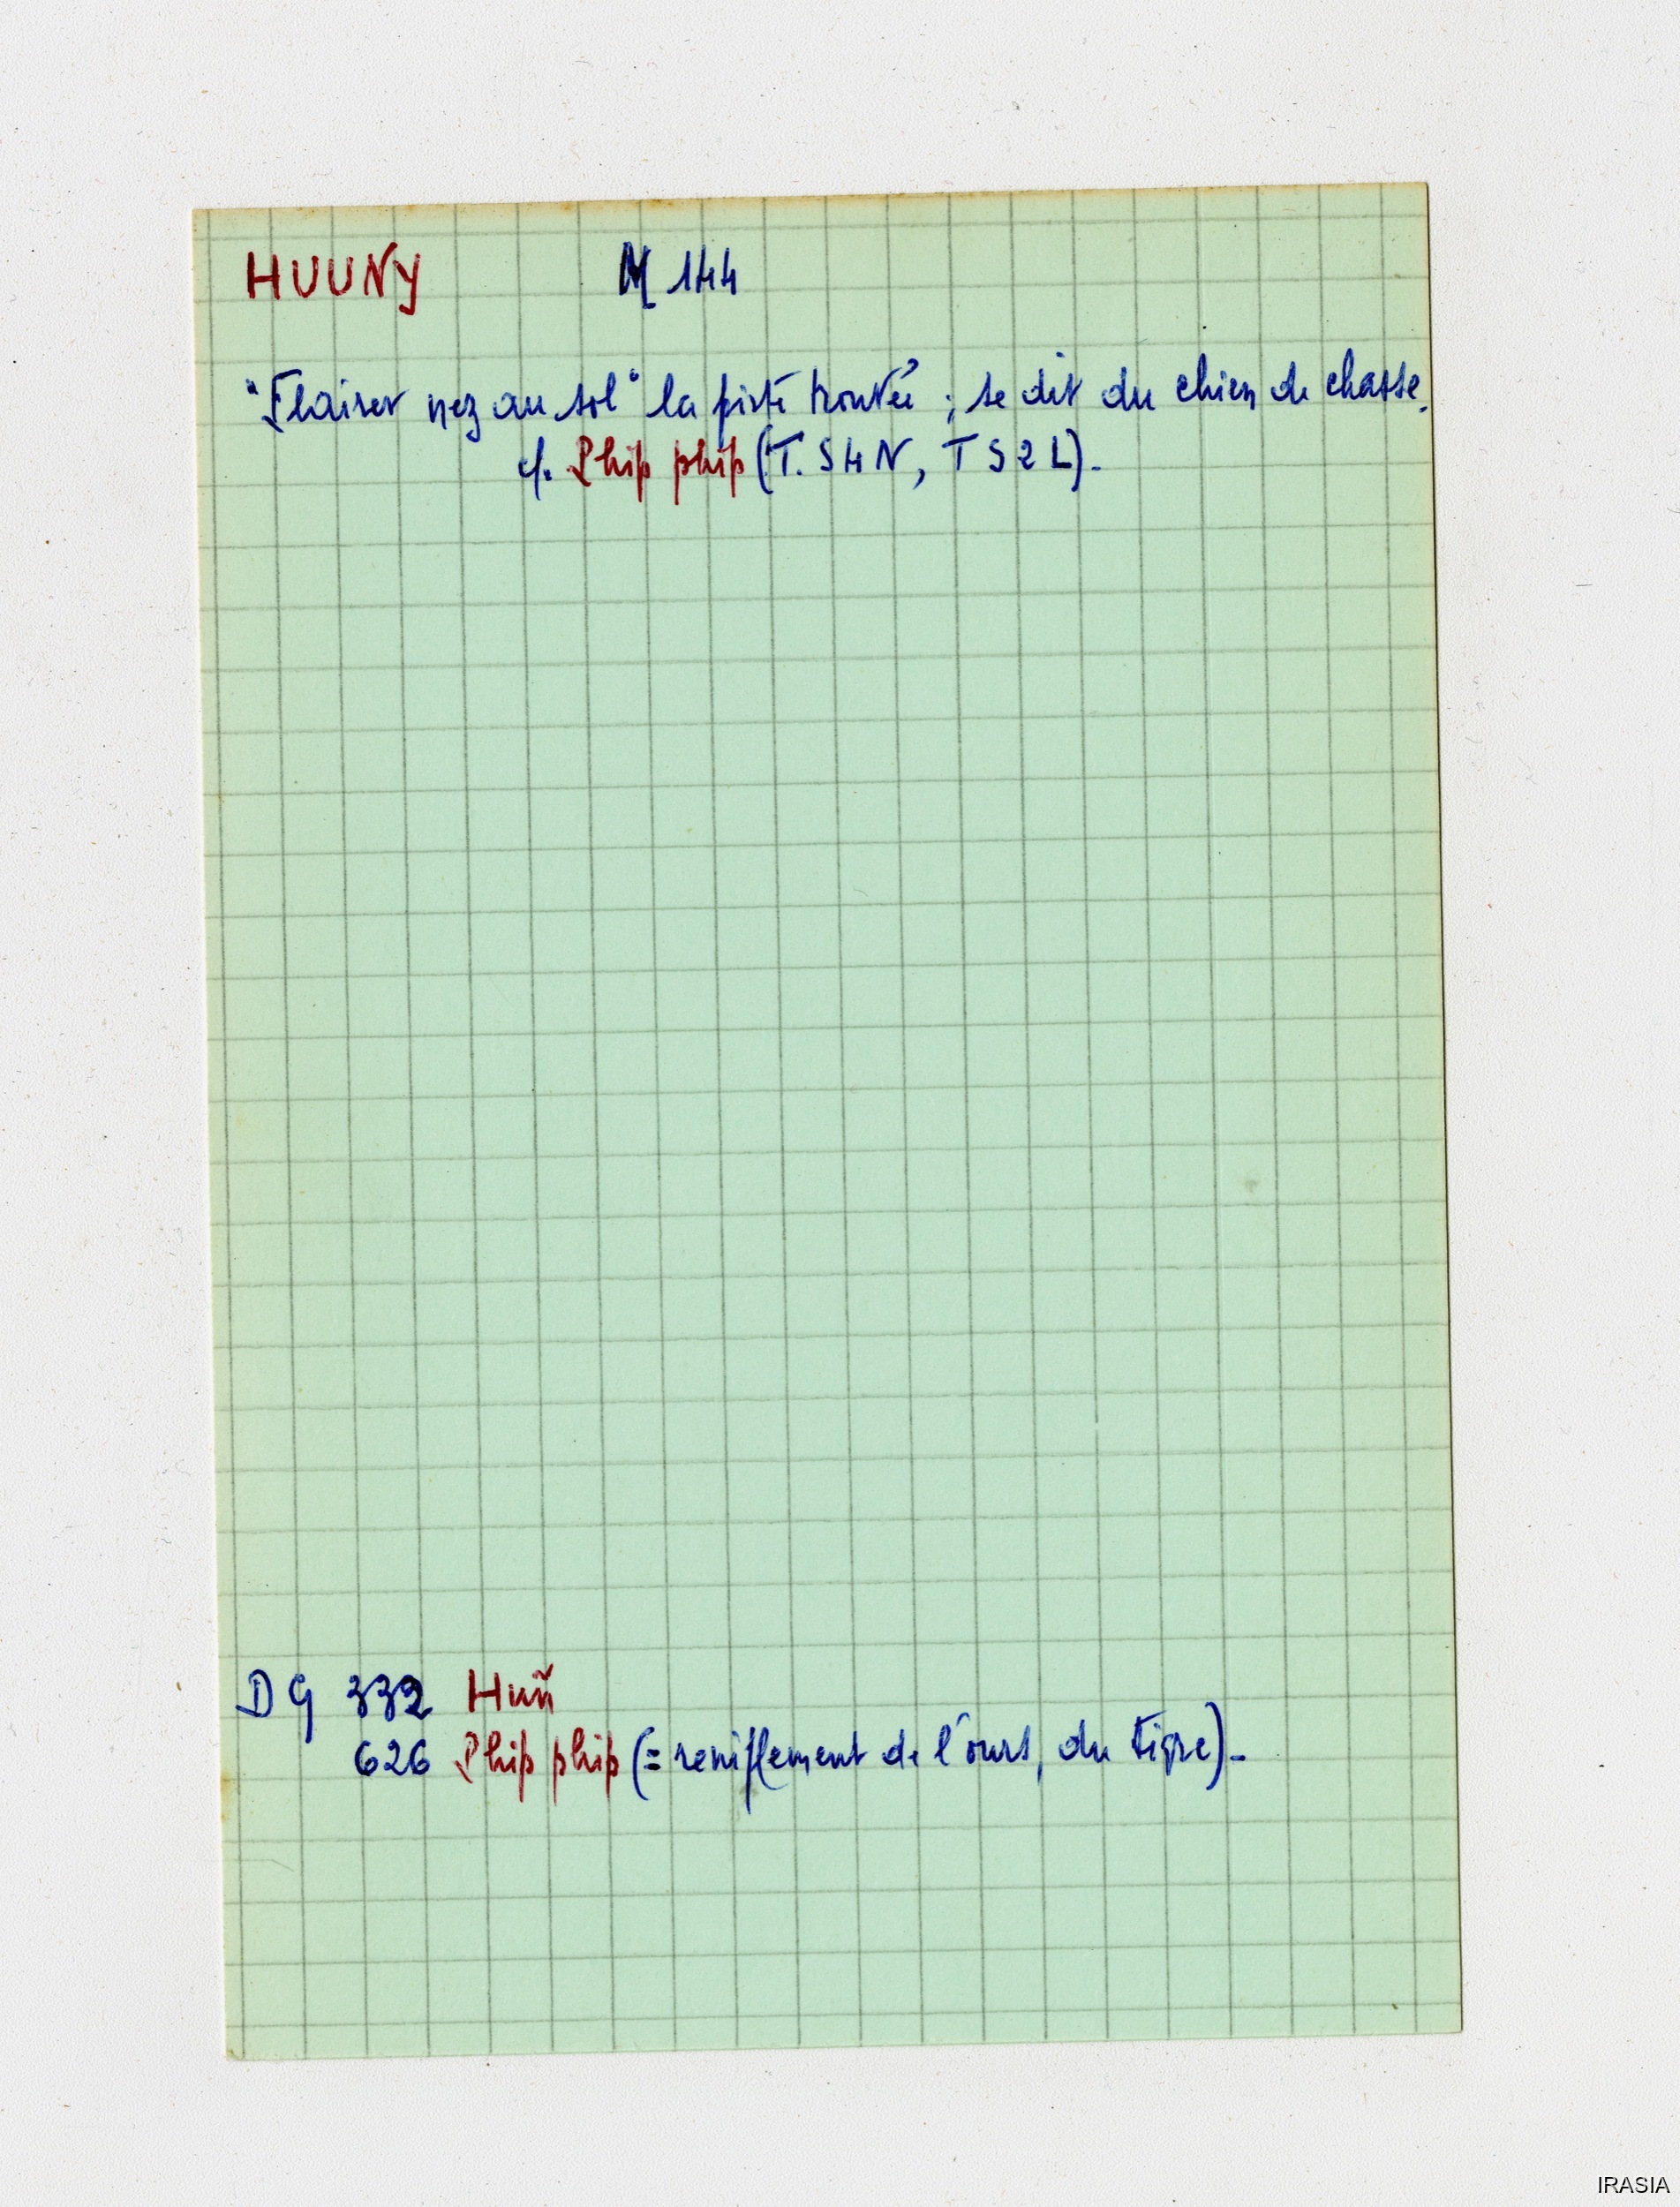 HUUNY M 144
"Flairer nez au sol" la piste trouvée ; se dit du chien de chasse.
cf. Phip phip (T. S4N, TS2L).
DG 332 Huñ
626 Phip phip (= reniflement de l'ours, du tigre).
IRASIA